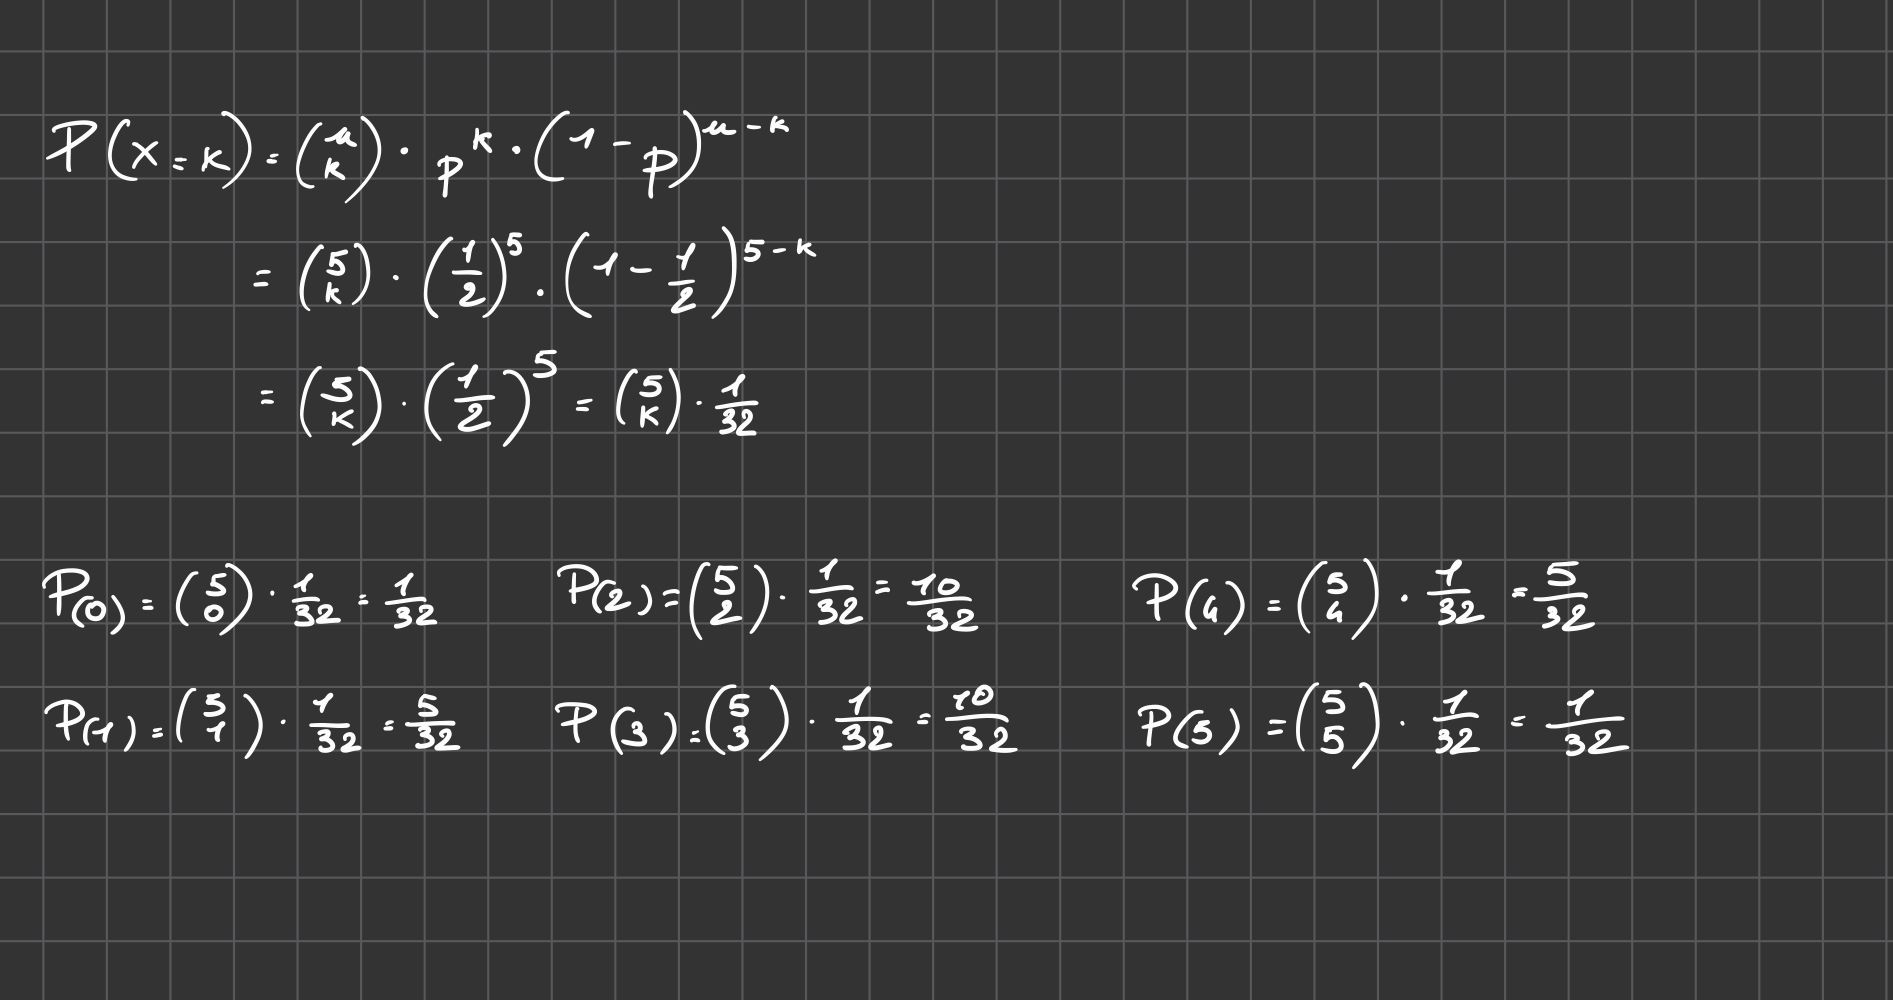 P(x=k) = (n k) · p^k · (1-p)^(n-k)
= (5 k) · (1/2)^5 · (1 - 1/2)^(5-k)
= (5 k) · (1/2)^5 = (5 k) · 1/32
P(0) = (5 0) · 1/32 = 1/32 P(2) = (5 2) · 1/32 = 10/32 P(4) = (5 4) · 1/32 = 5/32
P(1) = (5 1) · 1/32 = 5/32 P(3) = (5 3) · 1/32 = 10/32 P(5) = (5 5) · 1/32 = 1/32